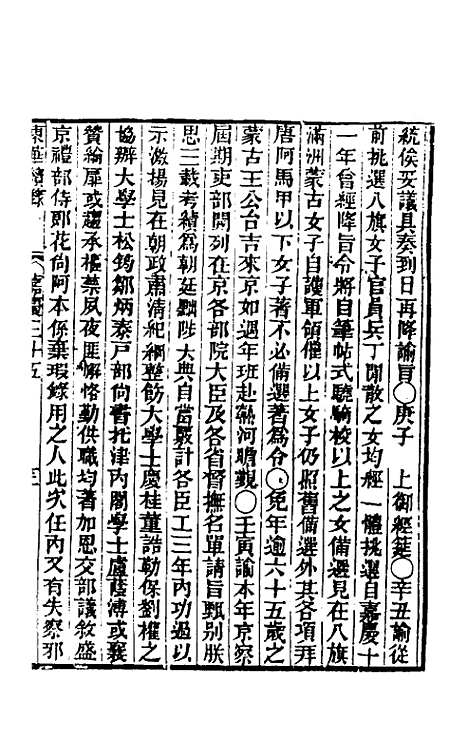 統俟妥議具奏到日再降諭旨○庚子　上御經筵○辛丑諭從
前挑選八旗女子官員兵丁閒散之女均經一體挑選自嘉慶十
一年曾經降旨令將自筆帖式驍騎校以上之女備選見在八旗
滿洲蒙古女子自護軍領催以上女子仍照舊備選外其各項拜
唐阿馬甲以下女子著不必備選著爲令○免年逾六十五歲之
蒙古王公台吉來京如遇年班赴熱河瞻覲○壬寅諭本年京察
屆期吏部開列在京各部院大臣及各省督撫名單請旨甄別朕
思三載考績爲朝廷黜陟大典自當嚴計各臣工三年內功過以
示激揚見在朝政肅清紀綱整飭大學士慶桂董誥勒保劉權之
協辦大學士松筠鄒炳泰戶部尙書托津內閣學士盧蔭溥或襄
贊綸扉或趨承樞禁夙夜匪懈恪勤供職均著加恩交部議敘盛
京禮部侍郎花尙阿本係棄瑕錄用之人此次任內又有失察邪
東華續錄　嘉慶三十五